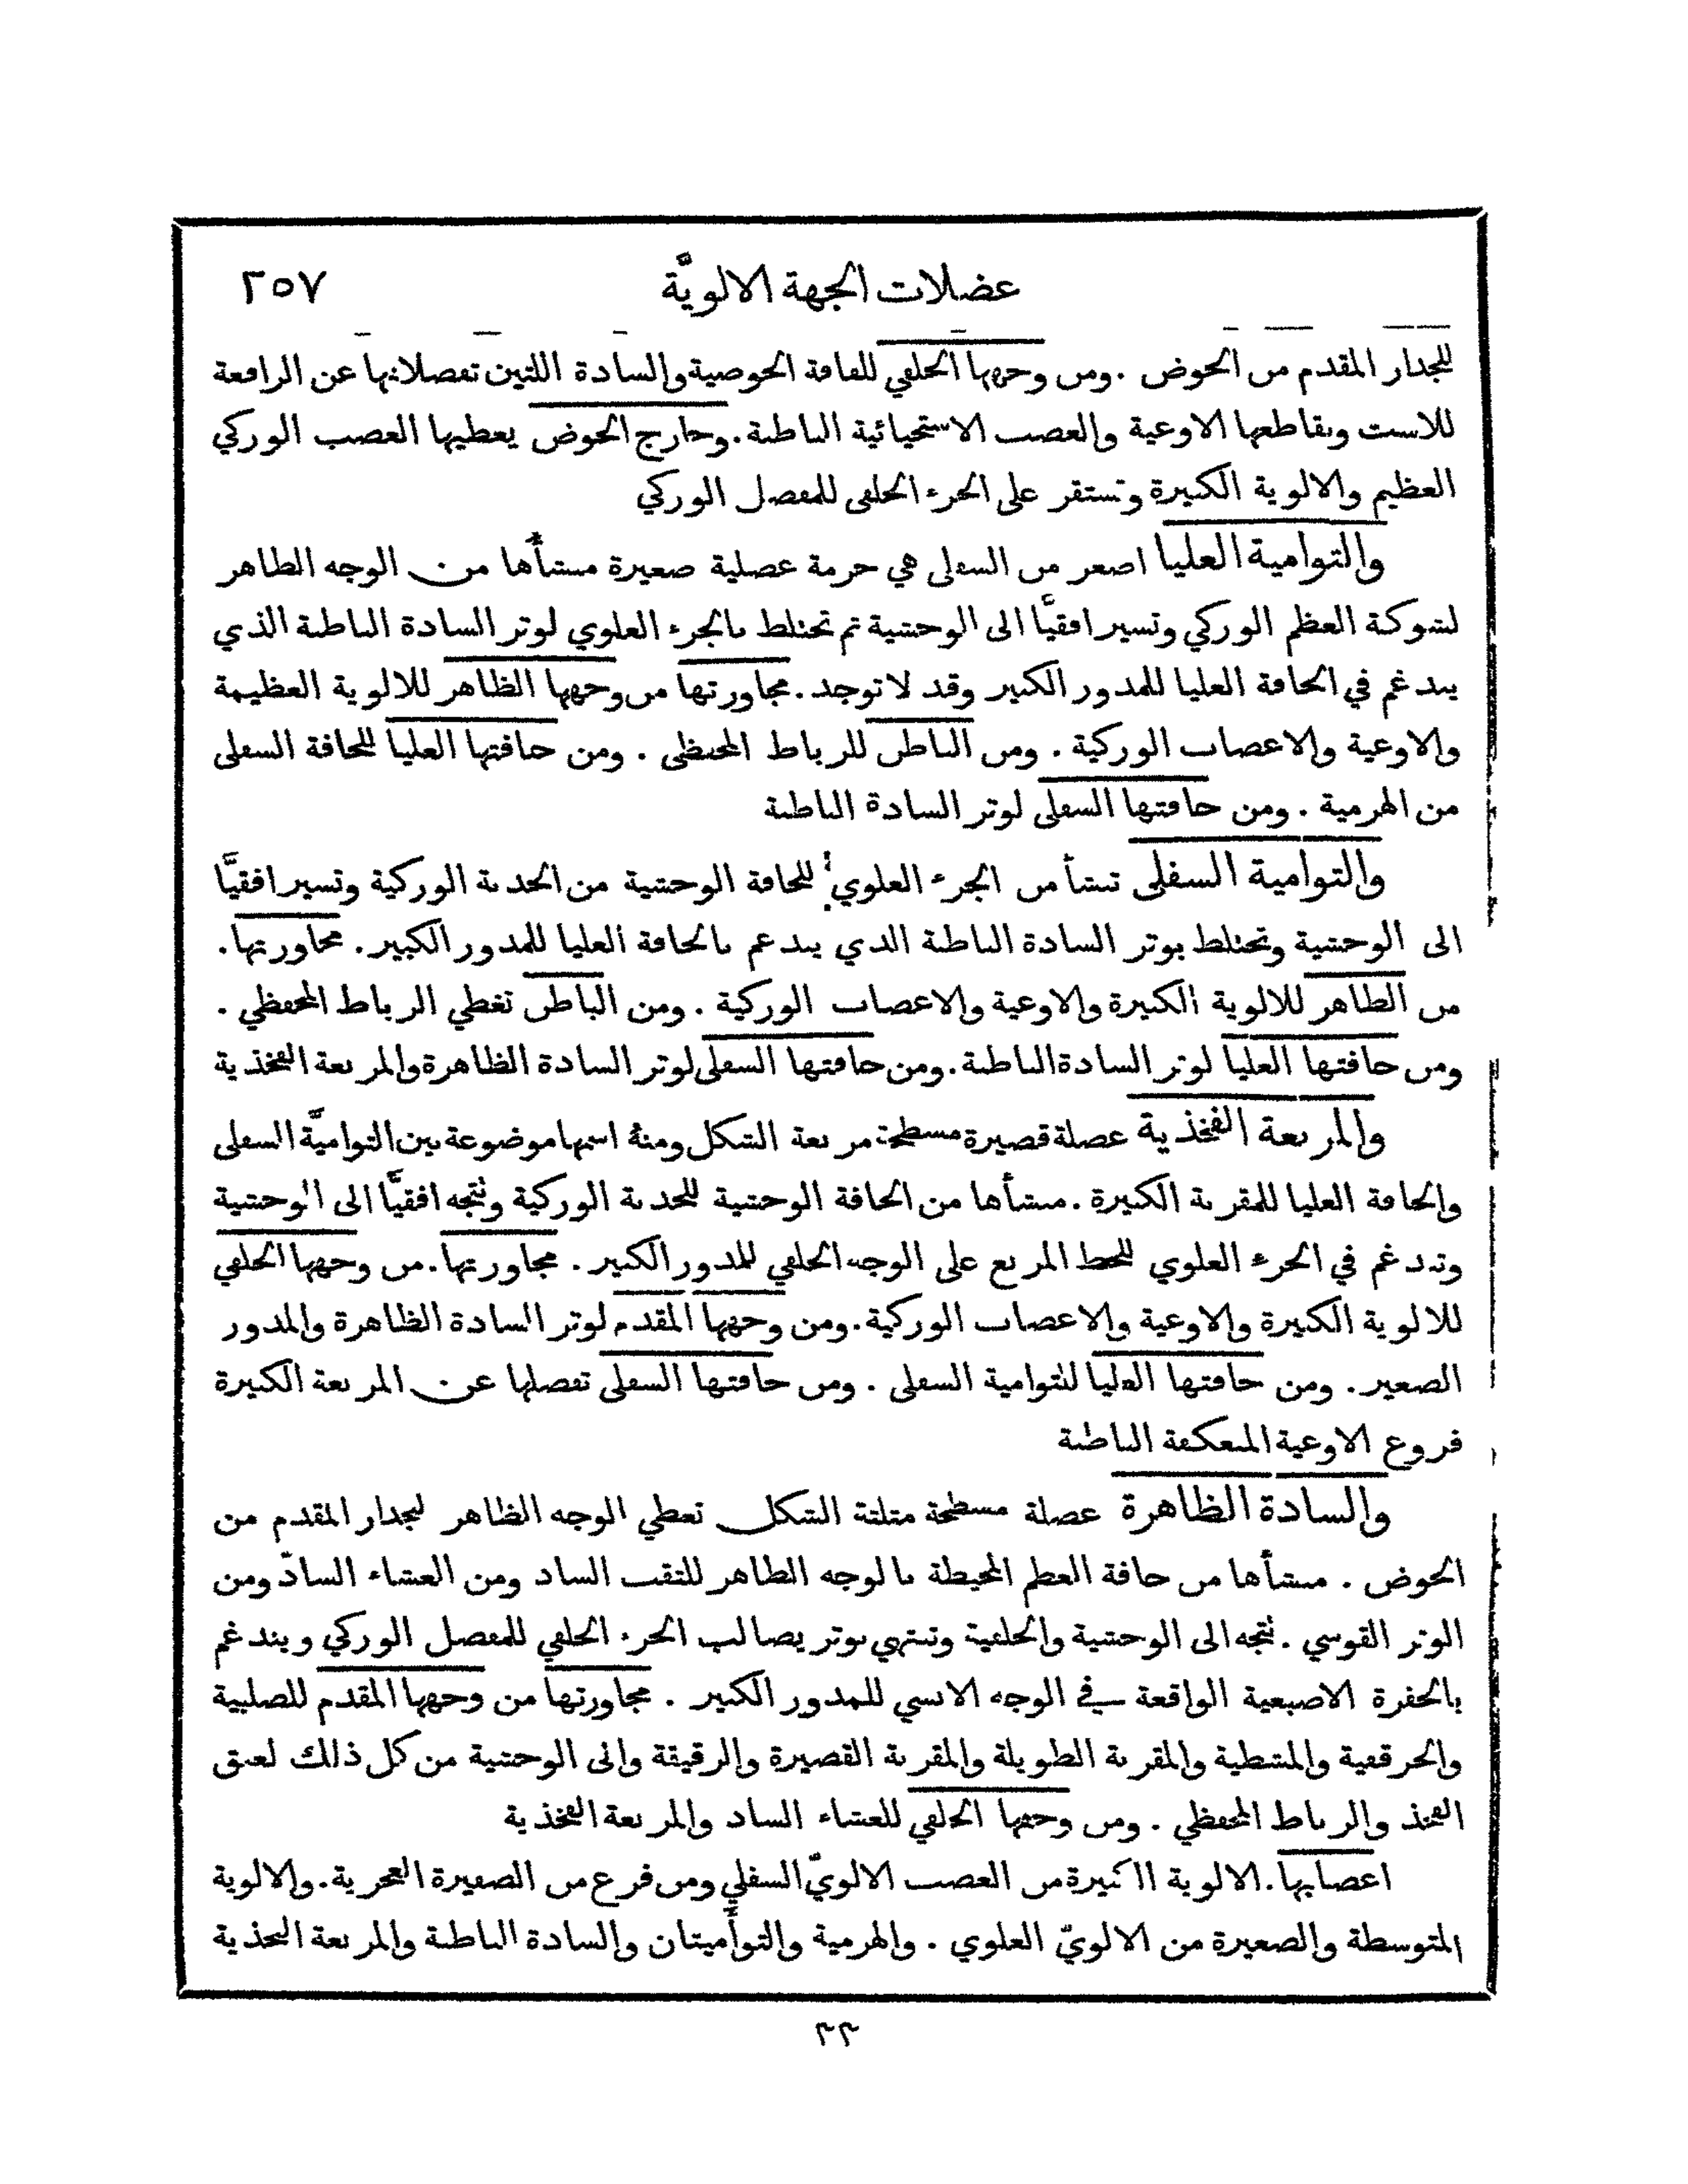 عضلات الجهة الالويَّة ٢٥٧
للجدار المقدم من الحوض . ومن وجهها الخلفي للفافة الحوضية والسادة اللتين تفصلانها عن الرافعة
للاست وتقاطعها الاوعية والعصب الاستحيائية الباطنة . وخارج الحوض يعطيها العصب الوركي
العظيم والالوية الكبيرة وتستقر على الجزء الخلفي للمفصل الوركي
والتوامية العليا اصغر من السفلى هي حزمة عضلية صغيرة منشأها من الوجه الظاهر
لشوكة العظم الوركي وتسير افقيًّا الى الوحشية ثم تختلط بالجزء العلوي لوتر السادة الباطنة الذي
يندغم في الحافة العليا للمدور الكبير وقد لا توجد . مجاورتها من وجهها الظاهر للالوية العظيمة
والاوعية والاعصاب الوركية . ومن الباطن للرباط المحفظي . ومن حافتها العليا للحافة السفلى
من الهرمية . ومن حافتها السفلى لوتر السادة الباطنة
والتوامية السفلى تنشأ من الجزء العلوي للحافة الوحشية من الحدبة الوركية وتسير افقيًّا
الى الوحشية وتختلط بوتر السادة الباطنة الذي يندغم بالحافة العليا للمدور الكبير . مجاورتها .
من الظاهر للالوية الكبيرة والاوعية والاعصاب الوركية . ومن الباطن تغطي الرباط المحفظي .
ومن حافتها العليا لوتر السادة الباطنة . ومن حافتها السفلى لوتر السادة الظاهرة والمربعة الفخذية
والمربعة الفخذية عضلة قصيرة مسطحة مربعة الشكل ومنهُ اسمها موضوعة بين التواميَّة السفلى
والحافة العليا للمقربة الكبيرة . منشأها من الحافة الوحشية للحدبة الوركية وتتجه افقيًّا الى الوحشية
وتدغم في الجزء العلوي للخط المربع على الوجه الخلفي للمدور الكبير . مجاورتها . من وجهها الخلفي
للالوية الكبيرة والاوعية والاعصاب الوركية . ومن وجهها المقدم لوتر السادة الظاهرة والمدور
الصغير . ومن حافتها العليا للتوامية السفلى . ومن حافتها السفلى تفصلها عن المربعة الكبيرة
فروع الاوعية المنعكفة الباطنة
والسادة الظاهرة عضلة مسطحة مثلثة الشكل تغطي الوجه الظاهر لجدار المقدم من
الحوض . منشأها من حافة العظم المحيطة بالوجه الظاهر للثقب الساد ومن الغشاء السادّ ومن
الوتر القوسي . تتجه الى الوحشية والخلفية وتنتهي بوتر يصالب الجزء الخلفي للمفصل الوركي ويندغم
بالحفرة الاصبعية الواقعة في الوجه الانسي للمدور الكبير . مجاورتها من وجهها المقدم للصلبية
والحرقفية والمشطية والمقربة الطويلة والمقربة القصيرة والرقيقة والى الوحشية من كل ذلك لعنق
الفخذ والرباط المحفظي . ومن وجهها الخلفي للغشاء الساد والمربعة الفخذية
اعصابها . الالوية الكبيرة من العصب الالويّ السفلي ومن فرع من الضفيرة العجزية . والالوية
المتوسطة والصغيرة من الالويّ العلوي . والهرمية والتوأميتان والسادة الباطنة والمربعة الفخذية
٣٣